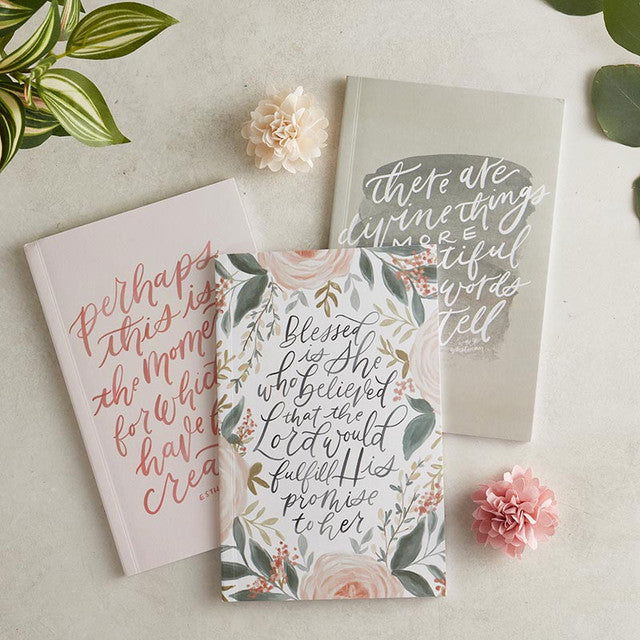 perhaps
this is
the mome
for whic
have b
crea
ESTH
Blessed
is she
who believed
that the
Lord would
fulfill His
promise
to her
there are
divine things
MORE
tiful
words
tell